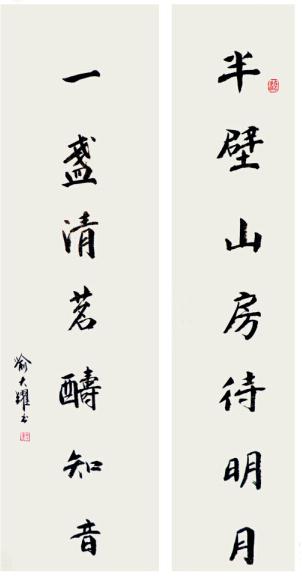 半壁山房待明月
一盏清茗酬知音
俞大耀书